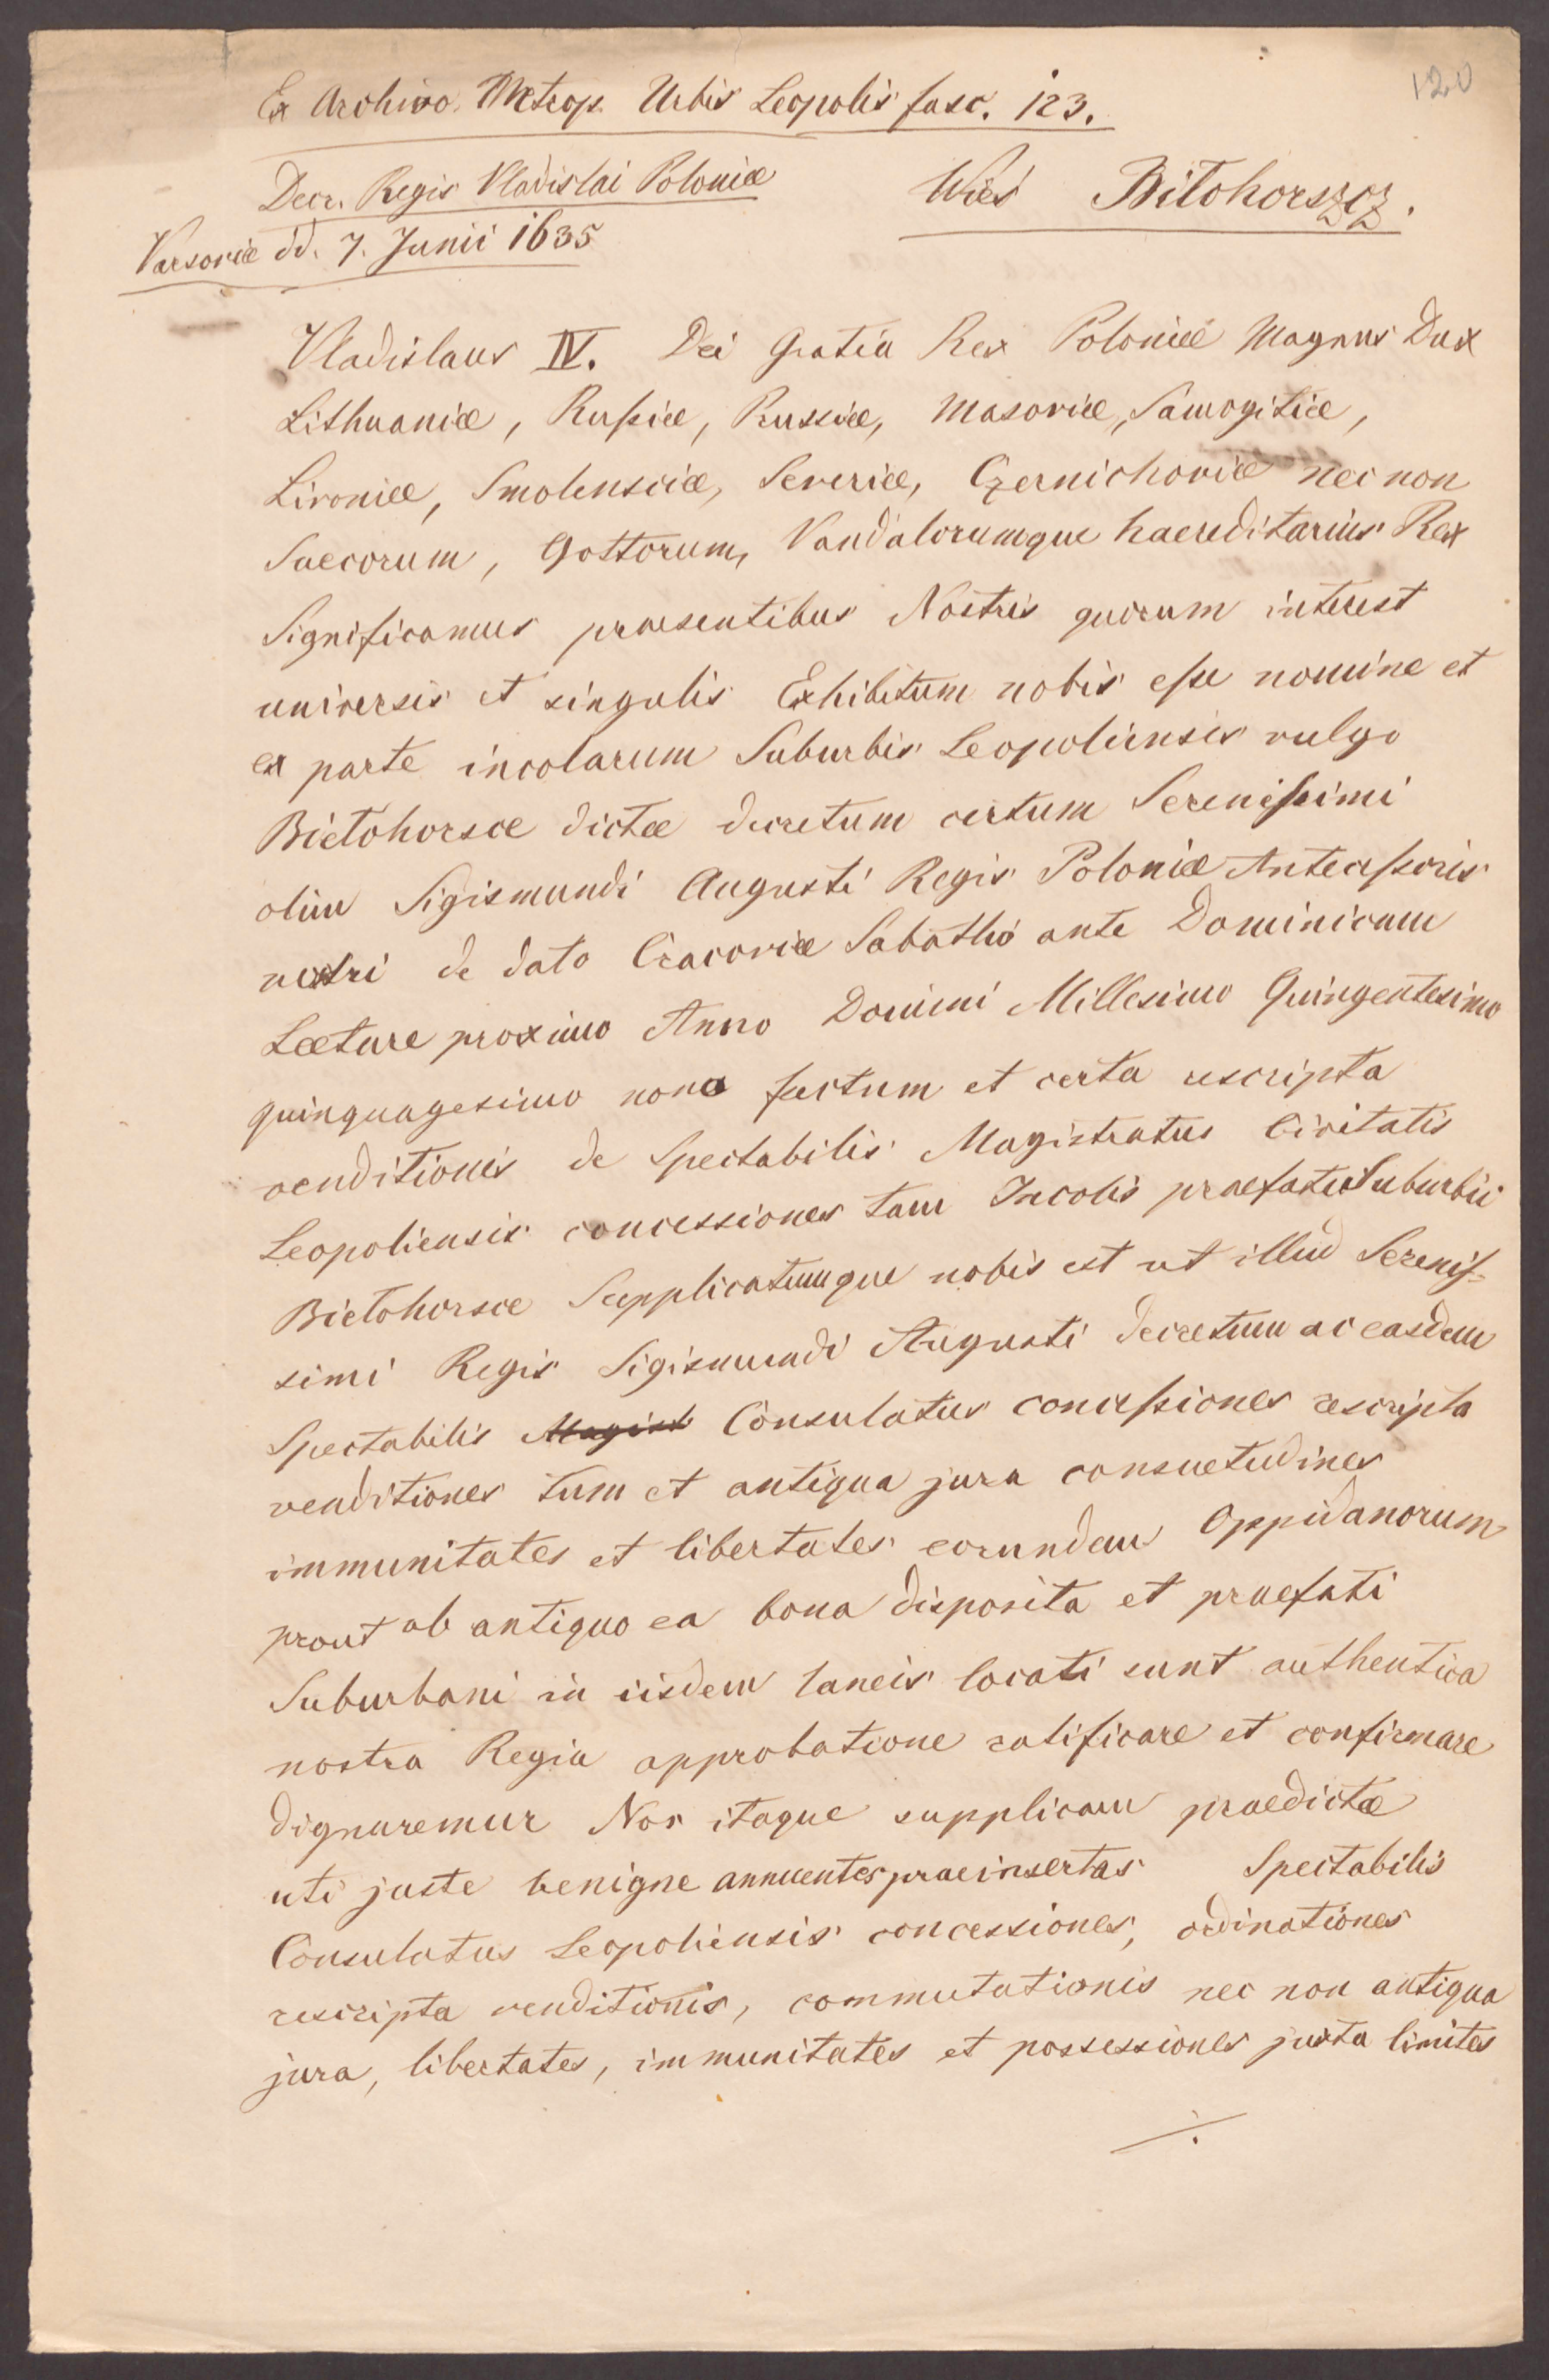 120
Ex Archivo Metrop. Urbis Leopolis fasc. 123.
Decr. Regis Vladislai Poloniæ
Wieś Bitohorszcz.
Varsoviæ dd. 7. Junii 1635
Vladislaus IV. Dei Gratia Rex Poloniæ Magnus Dux
Lithuaniæ, Russiæ, Prussiæ, Masoviæ, Samogitiæ,
Livoniæ, Smolensciæ, Severiæ, Czernichoviæ nec non
Suecorum, Gottorum, Vandalorumque haereditarius Rex
Significamus praesentibus Nostris quorum interest
universis et singulis Exhibitum nobis esse nomine et
ex parte incolarum Suburbis Leopoliensis vulgo
Bietohorsce dictæ decretum certum Serenissimi
olim Sigismundi Augusti Regis Poloniæ Antecessoris
nostri de dato Cracoviæ Sabatho ante Dominicam
Lætare proximo Anno Domini Millesimo Quingentesimo
quinquagesimo nono factum et certa rescripta
venditionis de Spectabilis Magistratus Civitatis
Leopoliensis concessiones tam Incolis praefatis Suburbii
Bietohorsce Supplicatumque nobis est ut illud Serenis-
simi Regis Sigismundi Augusti decretum ac easdem
Spectabilis Magist Consulatus concessiones rescripta
venditiones tum et antiqua jura consuetudines
immunitates et libertates eorundem Oppidanorum
prout ab antiquo ea bona disposita et praefati
Suburbani in iisdem laneis locati sunt authentica
nostra Regia approbatione ratificare et confirmare
dignaremur Nos itaque supplicam praedictæ
uti juste benigne annuentes praeinsertas Spectabilis
Consulatus Leopoliensis concessiones, ordinationes
rescripta venditionis, commutationis nec non antiqua
jura, libertates, immunitates et possessiones juxta limites
./.